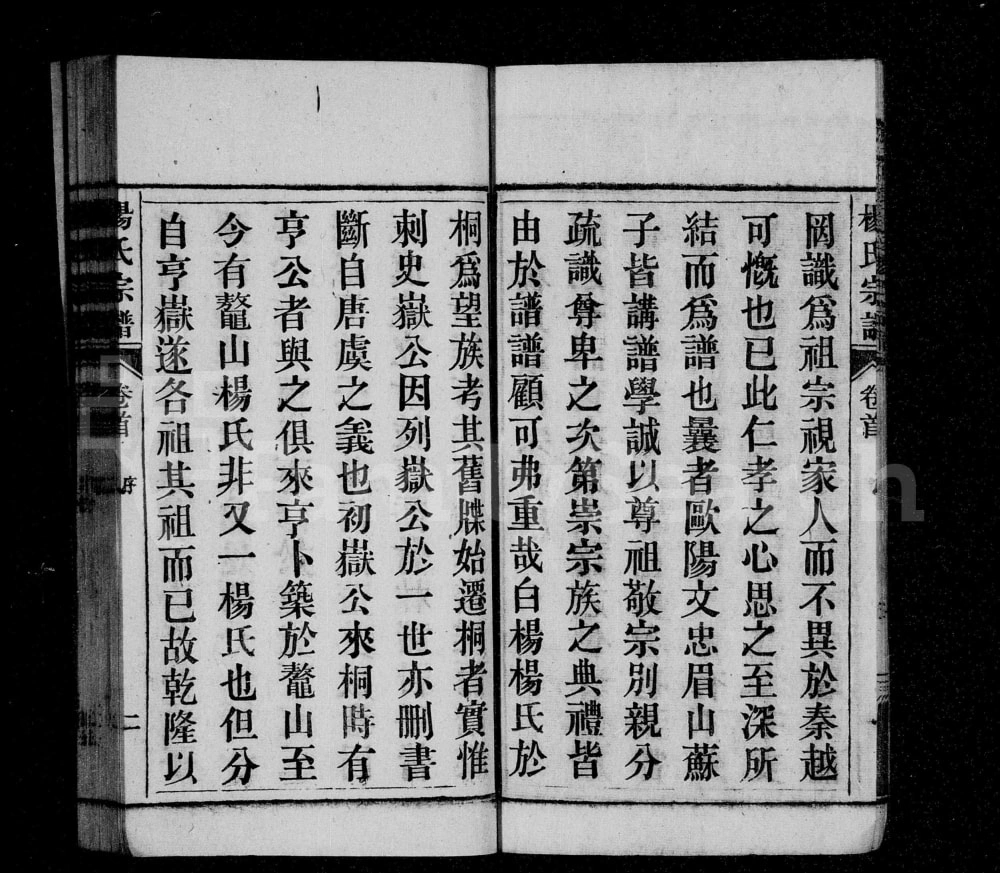 楊氏宗譜 卷首
罔識為祖宗視家人而不異於秦越
可慨也已此仁孝之心思之至深所
結而為譜也曩者歐陽文忠眉山蘇
子皆講譜學誠以尊祖敬宗別親分
疏識尊卑之次第崇宗族之典禮皆
由於譜譜顧可弗重哉白楊楊氏於
桐為望族考其舊牒始遷桐者實惟
刺史嶽公因列嶽公於一世亦刪書
斷自唐虞之義也初嶽公來桐時有
亨公者與之俱來亨卜築於鼇山至
今有鼇山楊氏非又一楊氏也但分
自亨嶽遂各祖其祖而已故乾隆以
楊氏宗譜 卷首 序 二